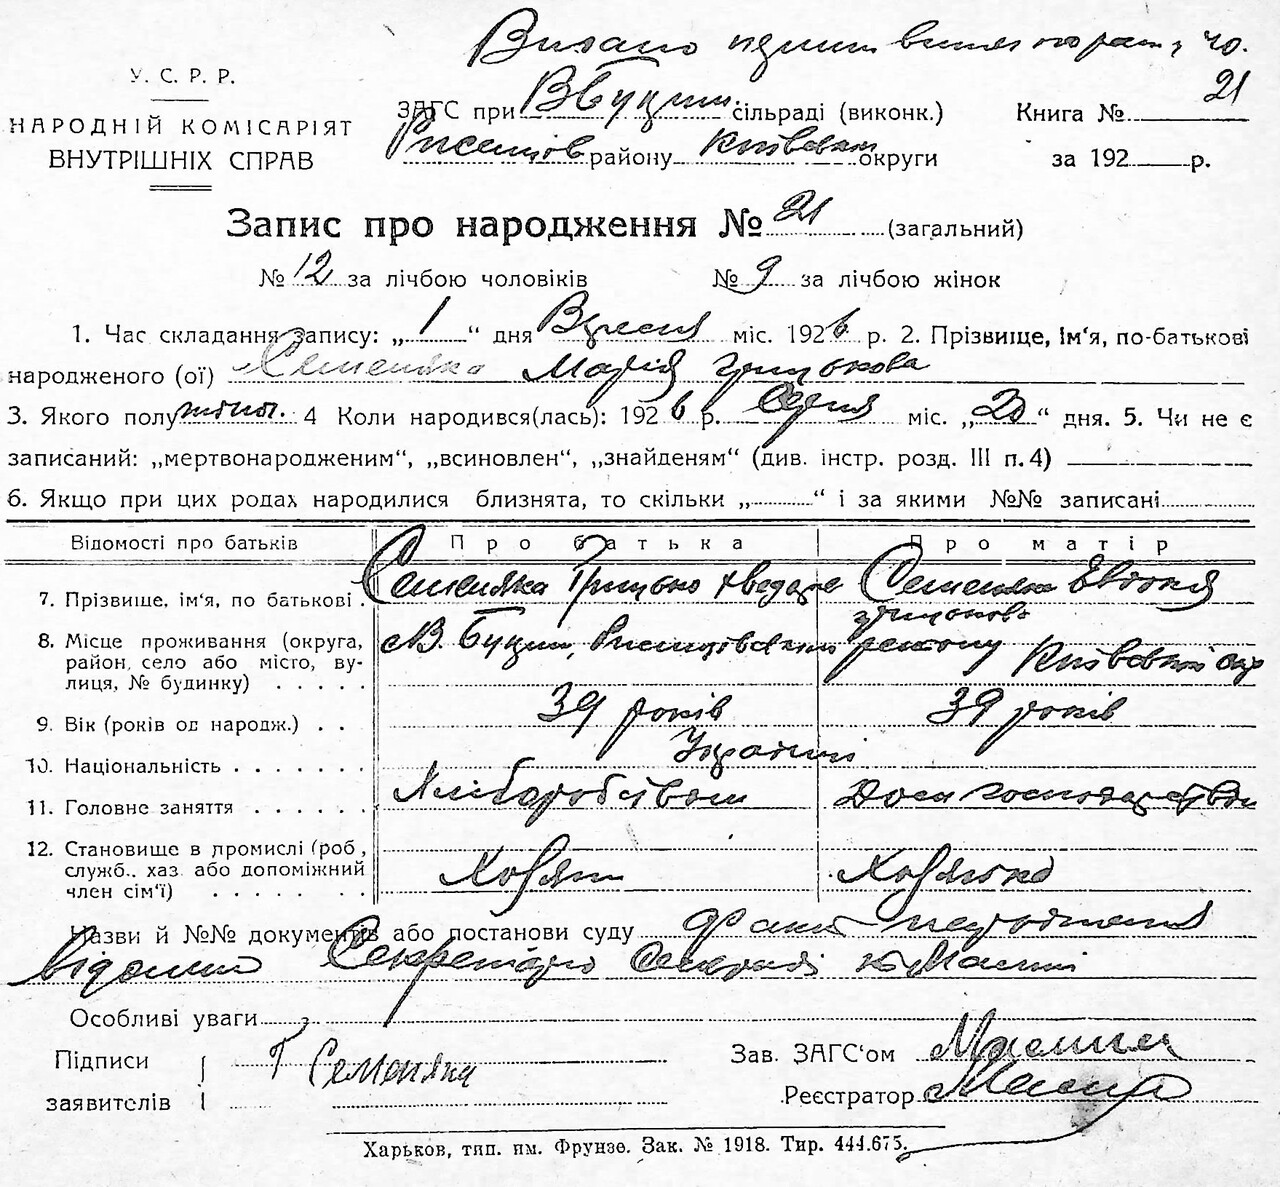 Видано
У. С. Р. Р.
НАРОДНІЙ КОМІСАРІЯТ
ВНУТРІШНІХ СПРАВ
ЗАГС при В Буцки сільраді (виконк.)
району Київськ округи
Книга № 21
за 192 р.
Запис про народження № 21 (загальний)
№ 12 за лічбою чоловіків № 9 за лічбою жінок
1. Час складання запису: „1“ дня Вересня міс. 1926 р. 2. Прізвище, Ім'я, по-батькові
народженого (ої) Семеняка Марія Грицькова
3. Якого полу жіноч. 4 Коли народився(лась): 1926 р. Серпня міс. „20“ дня. 5. Чи не є
записаний: „мертвонародженим“, „всиновлен“, „знайденям“ (див. інстр. розд. III п. 4)
6. Якщо при цих родах народилися близнята, то скільки „ “ і за якими №№ записані
Відомості про батьків Про батька Про матір
7. Прізвище, ім'я, по батькові Семеняка Грицько Хведоро Семеняка Евдокія
Грицьков
8. Місце проживання (округа,
район, село або місто, ву-
лиця, № будинку) В. Буцки, району Київської окр
9. Вік (років од народж.) 39 років 39 років
10. Національність Українці
11. Головне заняття Хліборобством Дом господарством
12. Становище в промислі (роб,
служб., хаз. або допоміжний
член сім'ї) Хозяїн Хозяйка
Назви й №№ документів або постанови суду факт народження
відомий Секретарю Сільради
Особливі уваги
Підписи
заявителів Г Семеняка
Зав. ЗАГС'ом
Реєстратор
Харьков, тип. им. Фрунзе. Зак. № 1918. Тир. 444.675.